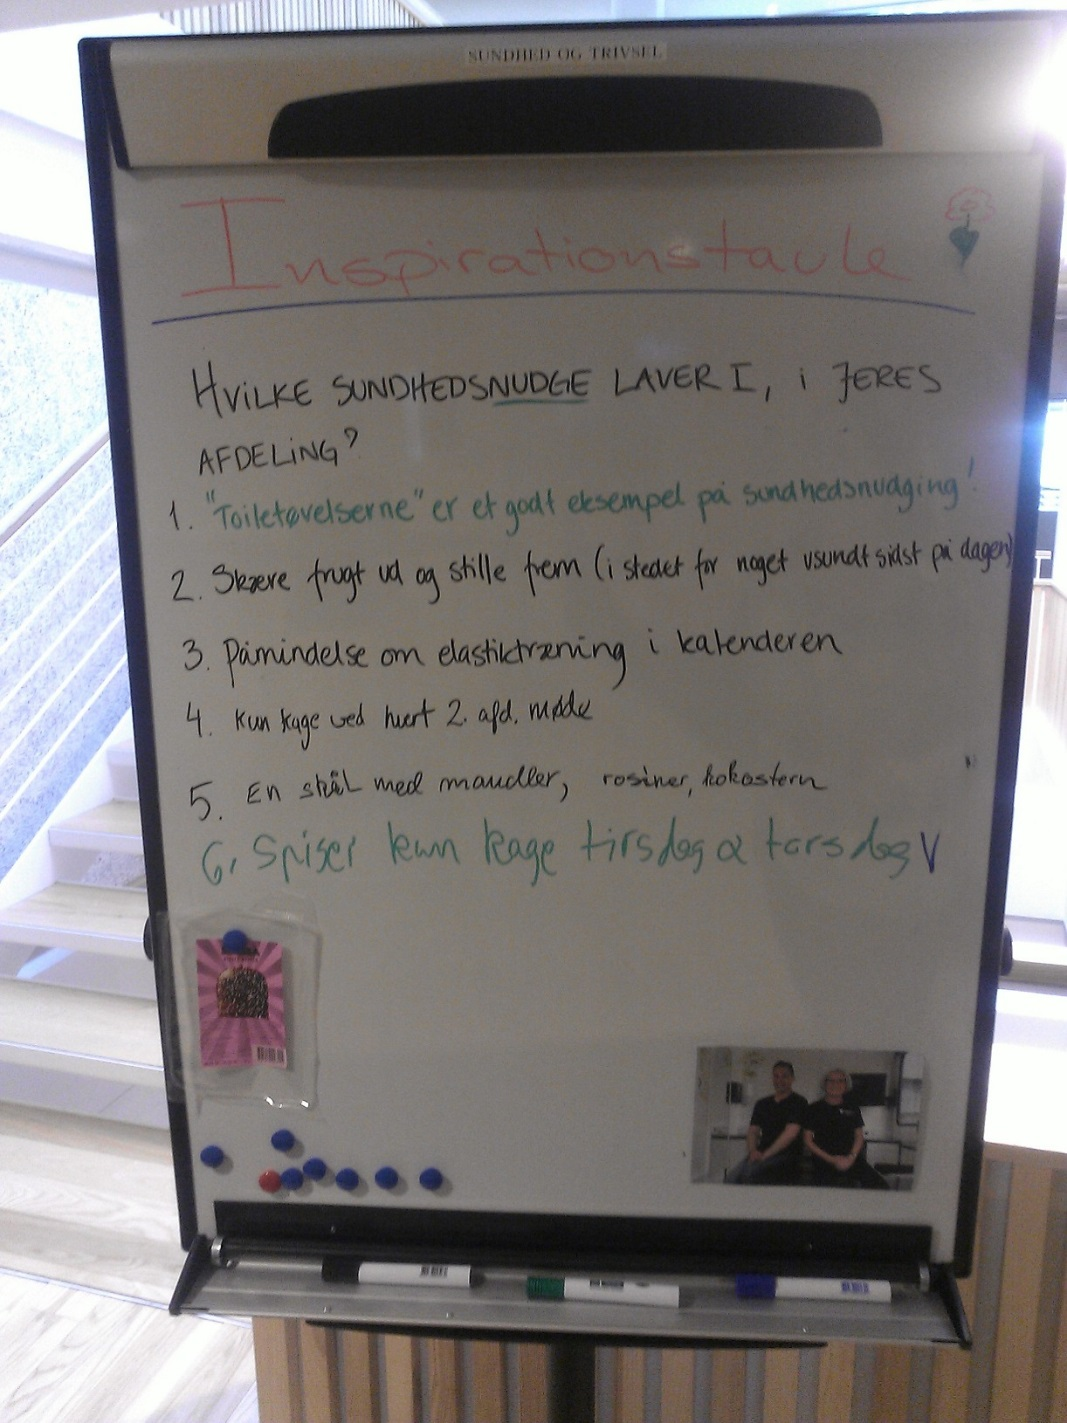 SUNDHED OG TRIVSEL
Inspirationstavle
HVILKE SUNDHEDSNUDGE LAVER I, i JERES
AFDELING?
1. "Toiletøvelserne" er et godt eksempel på sundhedsnudging!
2. Skære frugt ud og stille frem (i stedet for noget usundt sidst på dagen)
3. Påmindelse om elastiktræning i kalenderen
4. Kun kage ved hvert 2. afd. møde
5. En skål med mandler, rosiner, kokostern
6. Spiser kun kage tirsdag & torsdag V